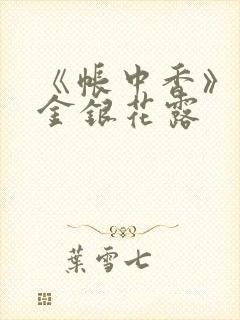 《帳中香》
金銀花露
葉雪七